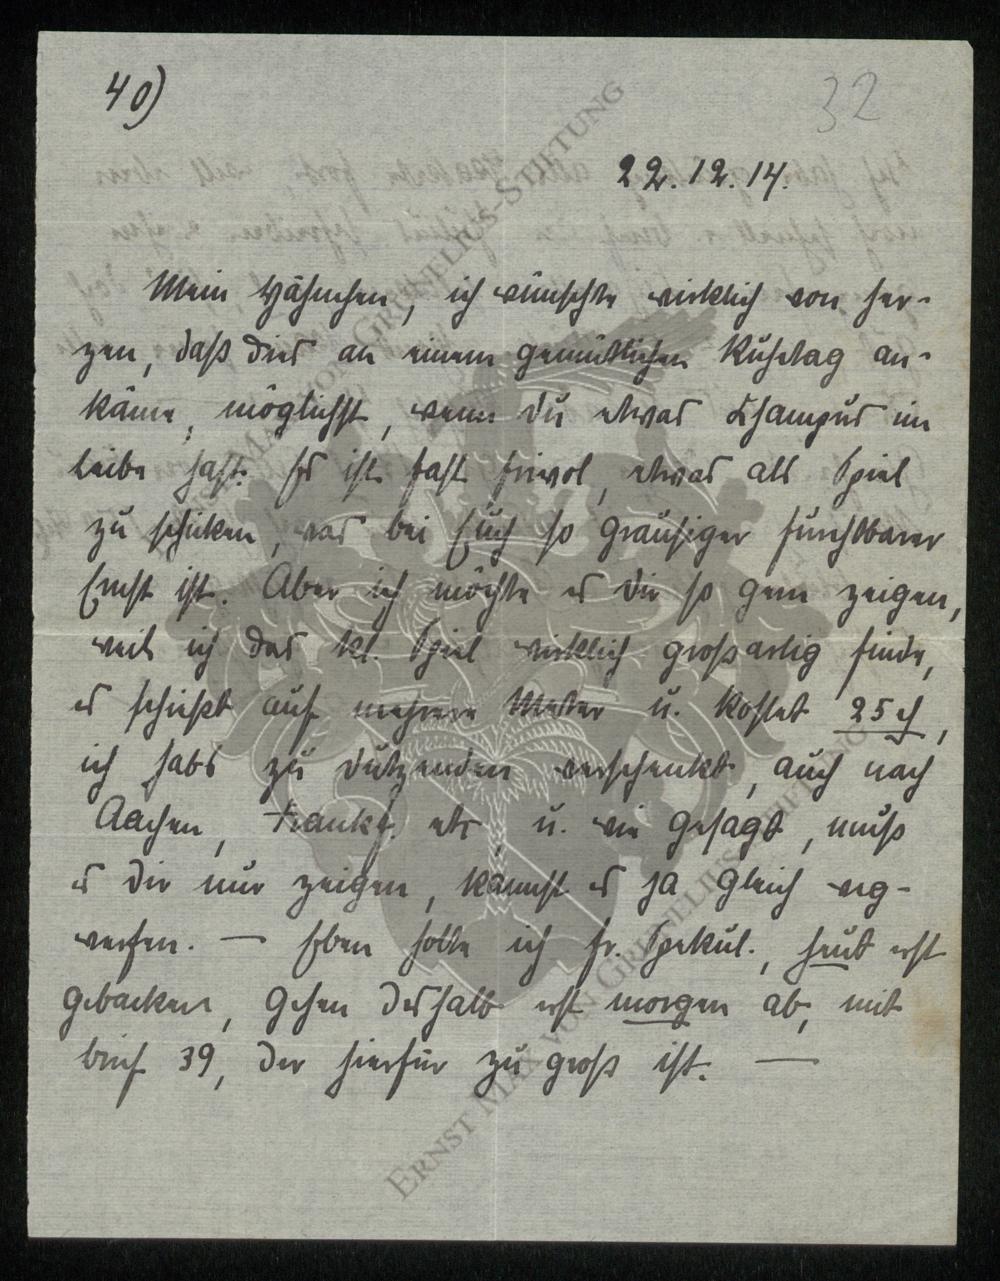 40)
32
22.12.14.
Mein Hähnchen, ich wünschte wirklich von Her-
zen, daß dies an einem gemütlichen Ruhetag an-
käme, möglichst, wenn Du etwas Champus im
Leibe hast. Es ist fast frivol, etwas als Spiel
zu schicken, was bei Euch so grausiger furchtbarer
Ernst ist. Aber ich möchte es Dir so gern zeigen,
weil ich das kl. Spiel wirklich großartig finde,
es schießt auf mehrere Meter u. kostet 25 ₰,
ich habs zu Dutzenden verschenkt, auch nach
Aachen, Frankf. etc, u. wie gesagt, muß
es Dir nur zeigen, kannst es ja gleich weg-
werfen. — Eben holte ich Fr. Spekul., heut erst
gebacken, gehen deshalb erst morgen ab, mit
Brief 39, der hierfür zu groß ist. —
ERNST MAX VON GRUNELIUS-STIFTUNG
ERNST MAX VON GRUNELIUS-STIFTUNG